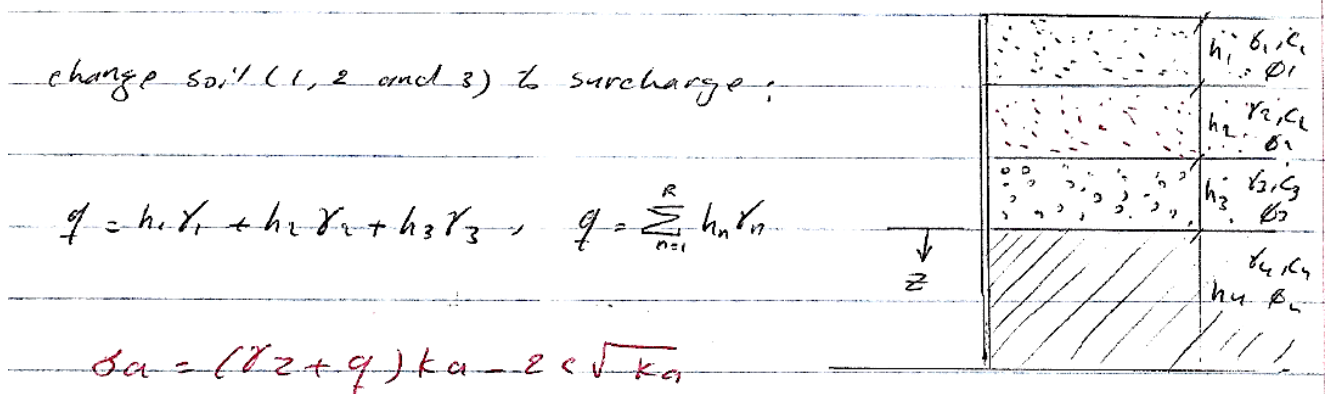 change soil (1, 2 and 3) to surcharge:
q = h₁γ₁ + h₂γ₂ + h₃γ₃ , q = Σ_{n=1}^{R} hₙγₙ
σa = (γz + q) ka - 2c√ka
h₁ γ₁,c₁
φ₁
h₂ γ₂,c₂
φ₂
h₃ γ₃,c₃
φ₃
z
γ₄,c₄
h₄ φ₄